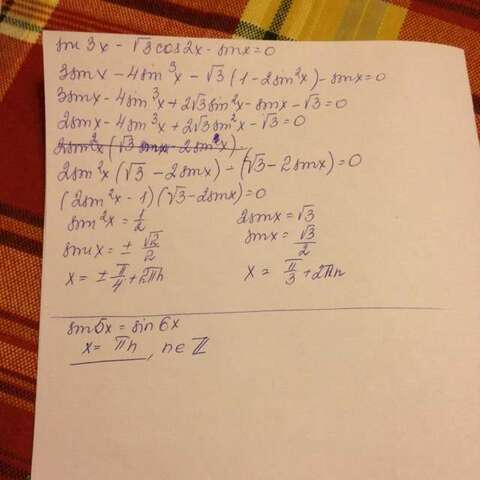 sin 3x - √3 cos2x - sinx = 0
3sinx - 4sin³x - √3 (1 - 2sin²x) - sinx = 0
3sinx - 4sin³x + 2√3 sin²x - sinx - √3 = 0
2sinx - 4sin³x + 2√3 sin²x - √3 = 0
2sin²x (√3 - 2sinx) - (√3 - 2sinx) = 0
(2sin²x - 1)(√3 - 2sinx) = 0
sin²x = 1/2 2sinx = √3
sinx = ± √2/2 sinx = √3/2
x = ± π/4 + 2πn x = π/3 + 2πn
sin5x = sin6x
x = πn, n∈ℤ